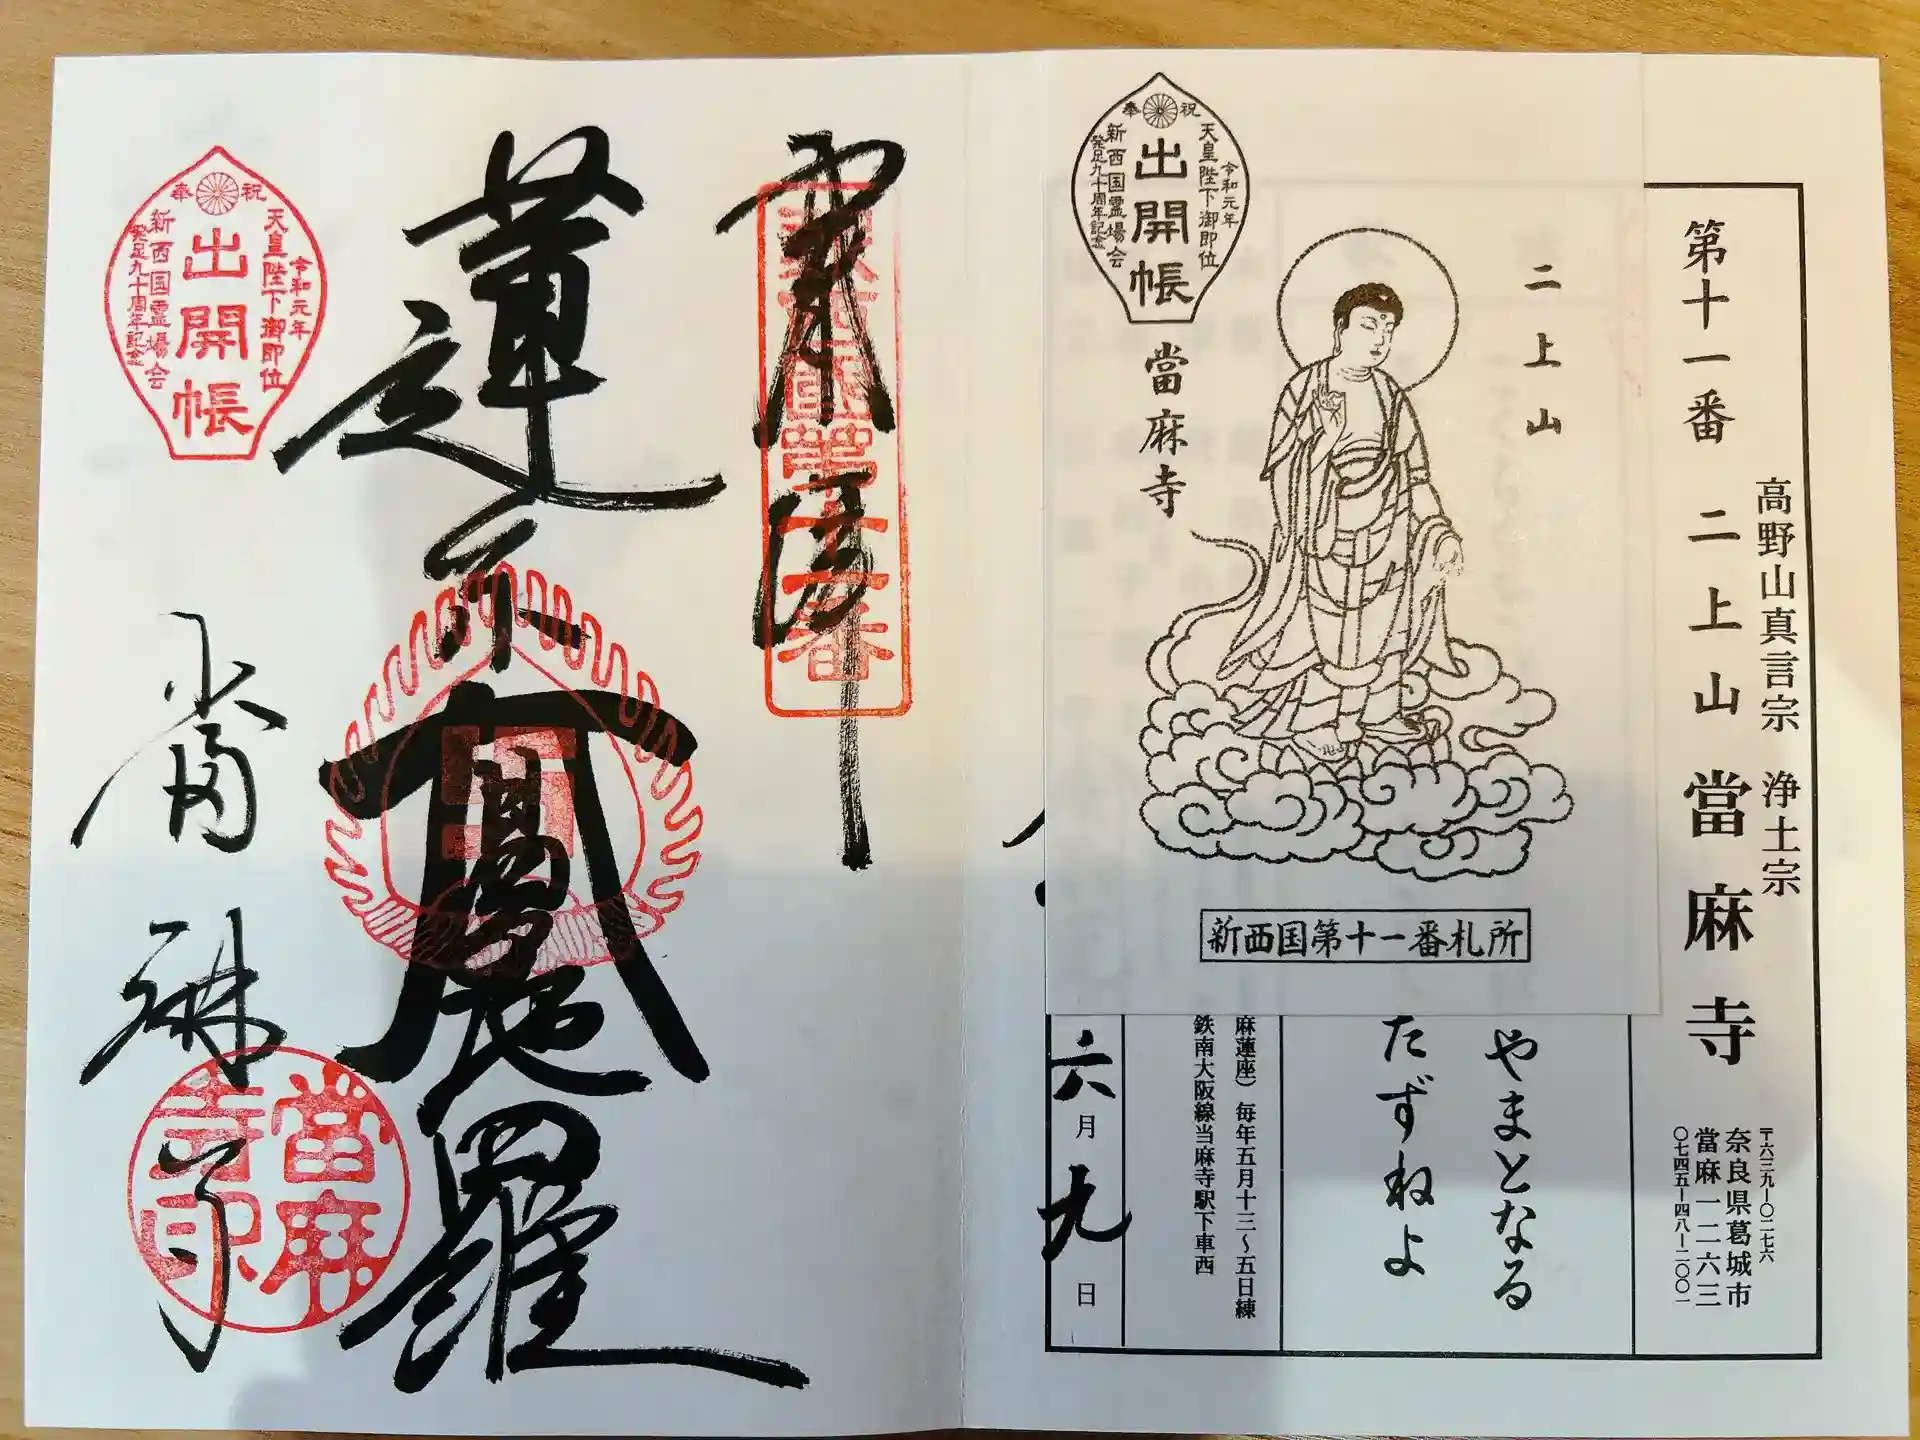 第十一番 二上山 當麻寺
高野山真言宗 浄土宗
〒六三九ー〇二七六
奈良県葛城市
當麻一二六三
〇七四五ー四八ー二〇〇一
二上山
奉祝
令和元年
天皇陛下御即位
出開帳
新西国霊場会
発足九十周年記念
當麻寺
新西国第十一番札所
やまとなる
たずねよ
麻蓮座）毎年五月十三〜五日練
鉄南大阪線当麻寺駅下車西
六月九日
奉拝
新西国第十一番
蓮糸
曼荼羅
奉祝
令和元年
天皇陛下御即位
出開帳
新西国霊場会
発足九十周年記念
當麻
寺印